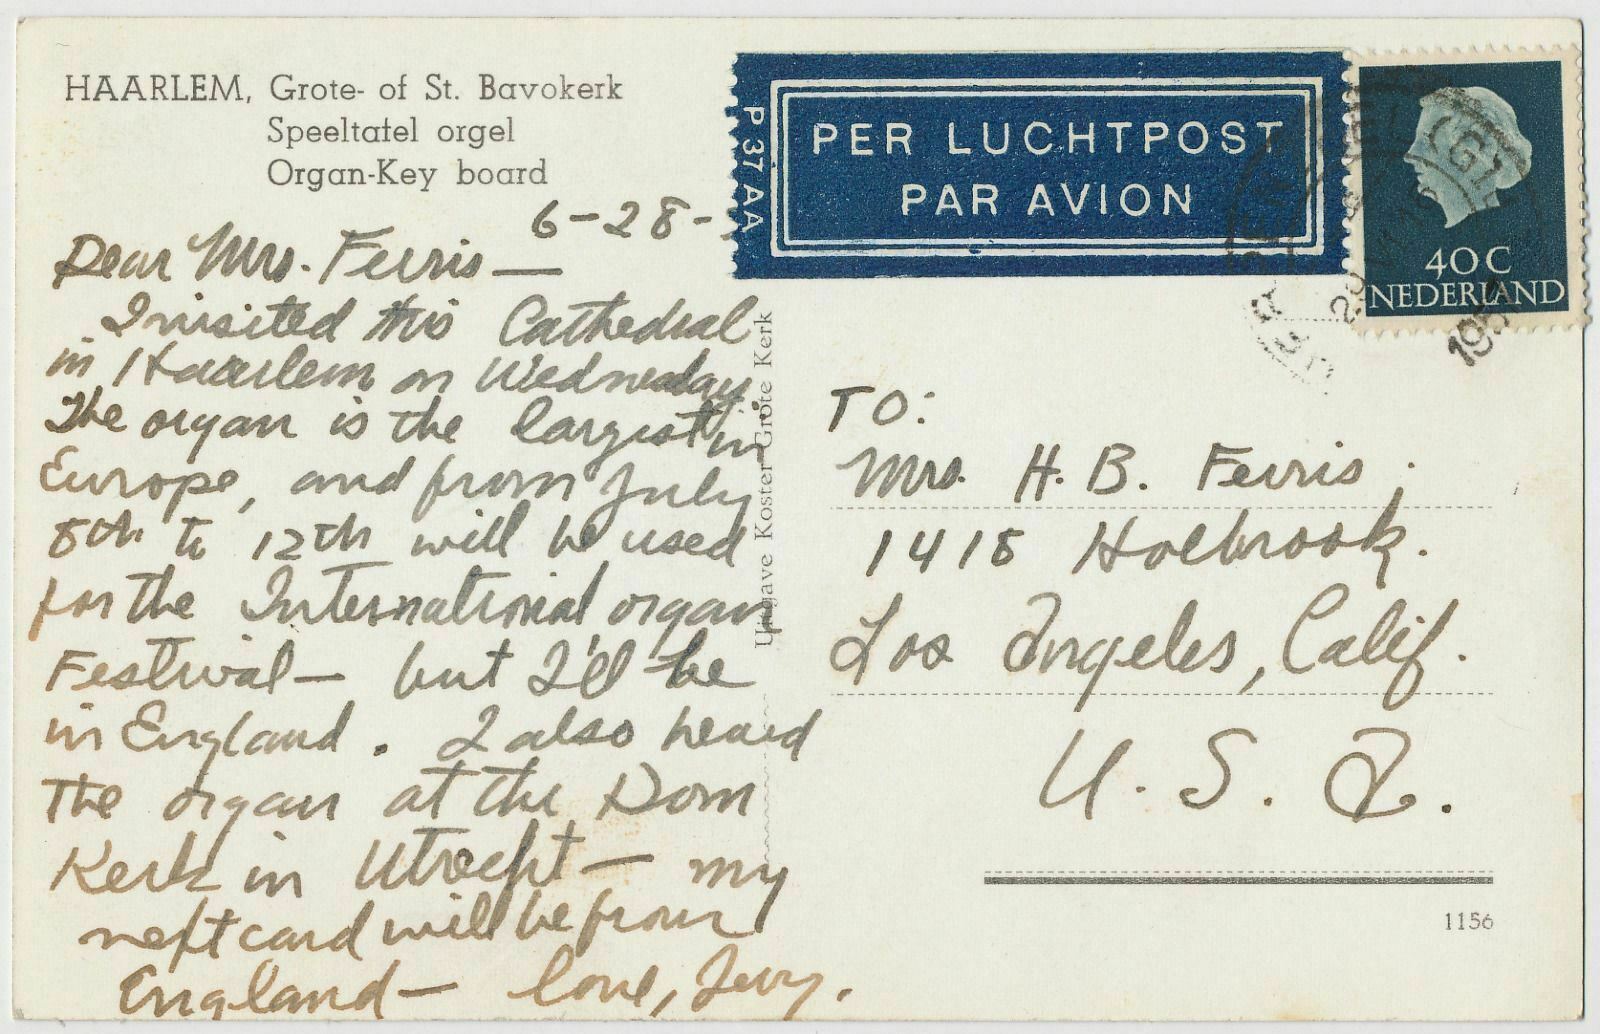 HAARLEM, Grote- of St. Bavokerk
Speeltafel orgel
Organ-Key board
6-28-
Dear Mrs. Ferris—
I visited this Cathedral
in Haarlem on Wednesday.
The organ is the largest in
Europe, and from July
8th to 12th will be used
for the International organ
Festival— but I'll be
in England. I also heard
the organ at the Dom
Kerk in Utrecht— my
next card will be from
England— love, Jerry.
Uitgave Koster Grote Kerk
P 37 AA
PER LUCHTPOST
PAR AVION
40 C
NEDERLAND
TO:
Mrs. H. B. Ferris
1418 Holbrook.
Los Angeles, Calif.
U. S. A.
1156